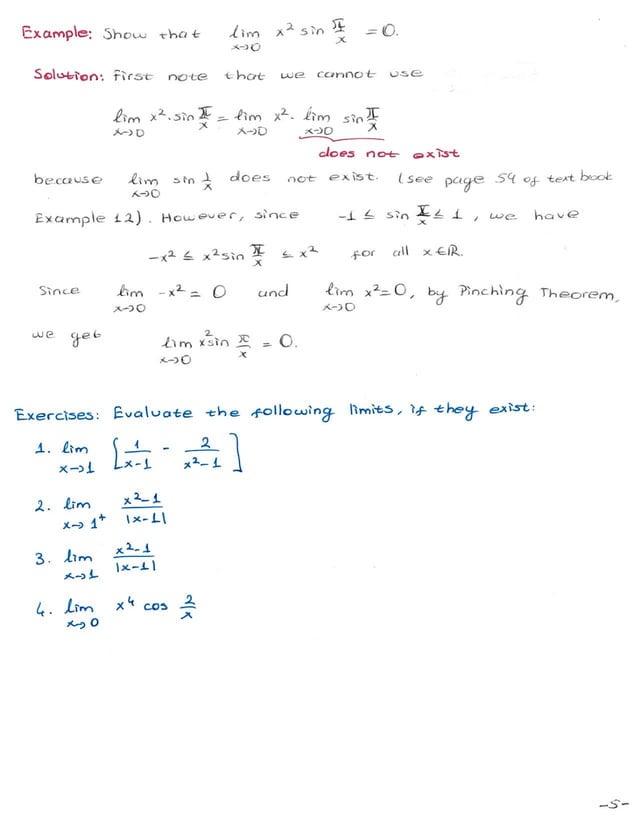 Example: Show that lim x→0 x² sin π/x = 0.
Solution: First note that we cannot use
lim x→0 x². sin π/x = lim x→0 x². lim x→0 sin π/x
does not exist
because lim x→0 sin 1/x does not exist. (see page 54 of text book
Example 12). However, since -1 ≤ sin π/x ≤ 1, we have
-x² ≤ x² sin π/x ≤ x² for all x∈ℝ.
Since lim x→0 -x² = 0 and lim x→0 x² = 0, by Pinching Theorem,
we get lim x→0 x² sin π/x = 0.
Exercises: Evaluate the following limits, if they exist:
1. lim x→1 [1/(x-1) - 2/(x²-1)]
2. lim x→1⁺ (x²-1)/|x-1|
3. lim x→1 (x²-1)/|x-1|
4. lim x→0 x⁴ cos 2/x
-5-